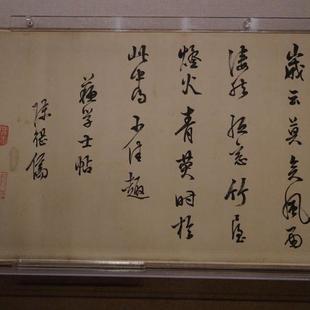 歲云莫矣風雨
凄然紙窗竹屋
燈火青熒時於
此中得少佳趣
蘇學士帖
陳繼儒